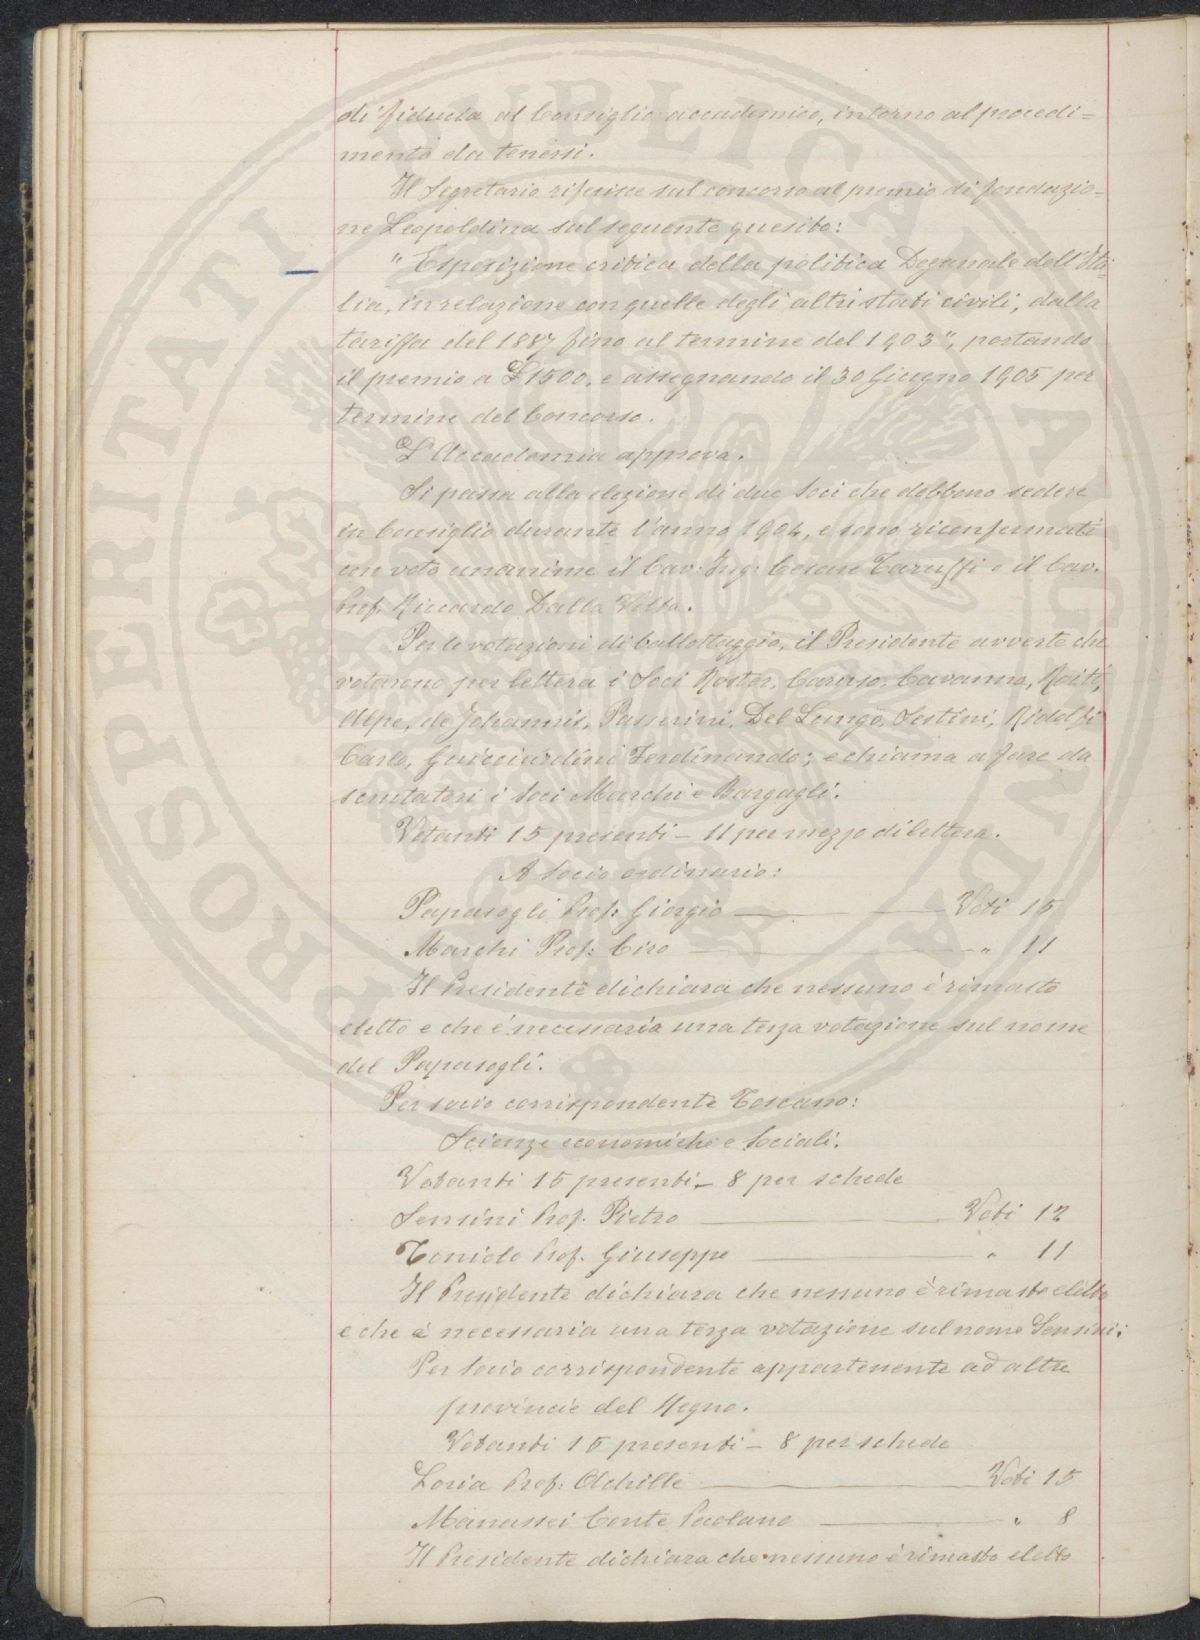 di fiducia al Consiglio accademico, intorno al procedi=
mento da tenersi.
Il Segretario riferisce sul concorso al premio di fondazio=
ne Leopoldina sul seguente quesito:
" Esposizione critica della politica Doganale dell'Ita=
lia, in relazione con quelle degli altri stati civili, dalla
tariffa del 1887 fino al termine del 1903", portando
il premio a £ 1500, e assegnando il 30 Giugno 1905 per
termine del Concorso.
L'Accademia approva.
Si passa alla elezione di due Soci che debbono sedere
in Consiglio durante l'anno 1904, e sono riconfermati
con voto unanime il Cav: Ing: Cesare Taruffi e il Cav.
Prof. Riccardo Dalla Volta.
Per le votazioni di ballottaggio, il Presidente avverte che
votarono per lettera i Soci Roster, Caruso, Cavanna, Roiti,
Alpe, de Johannis, Passerini, Del Lungo, Sestini, Ridolfi
Carlo, Guicciardini Ferdinando; e chiama a fare da
scrutatori i Soci Marchi e Bargagli.
Votanti 15 presenti – 11 per mezzo di lettera.
A Socio ordinario:
Papasogli Prof: Giorgio — Voti 15
Marchi Prof: Ciro — " 11
Il Presidente dichiara che nessuno è rimasto
eletto e che è necessaria una terza votazione sul nome
del Papasogli.
Per socio corrispondente Toscano:
Scienze economiche e Sociali.
Votanti 15 presenti – 8 per schede
Sensini Prof. Pietro — Voti 12
Toniolo Prof. Giuseppe — " 11
Il Presidente dichiara che nessuno è rimasto eletto
e che è necessaria una terza votazione sul nome Sensini:
Per Socio corrispondente appartenente ad altre
provincie del Regno.
Votanti 15 presenti – 8 per schede
Loria Prof: Achille — Voti 15
Manassei Conte Paolano — " 8
Il Presidente dichiara che nessuno è rimasto eletto
PROSPERITATI PUBLICAE AUGENDAE